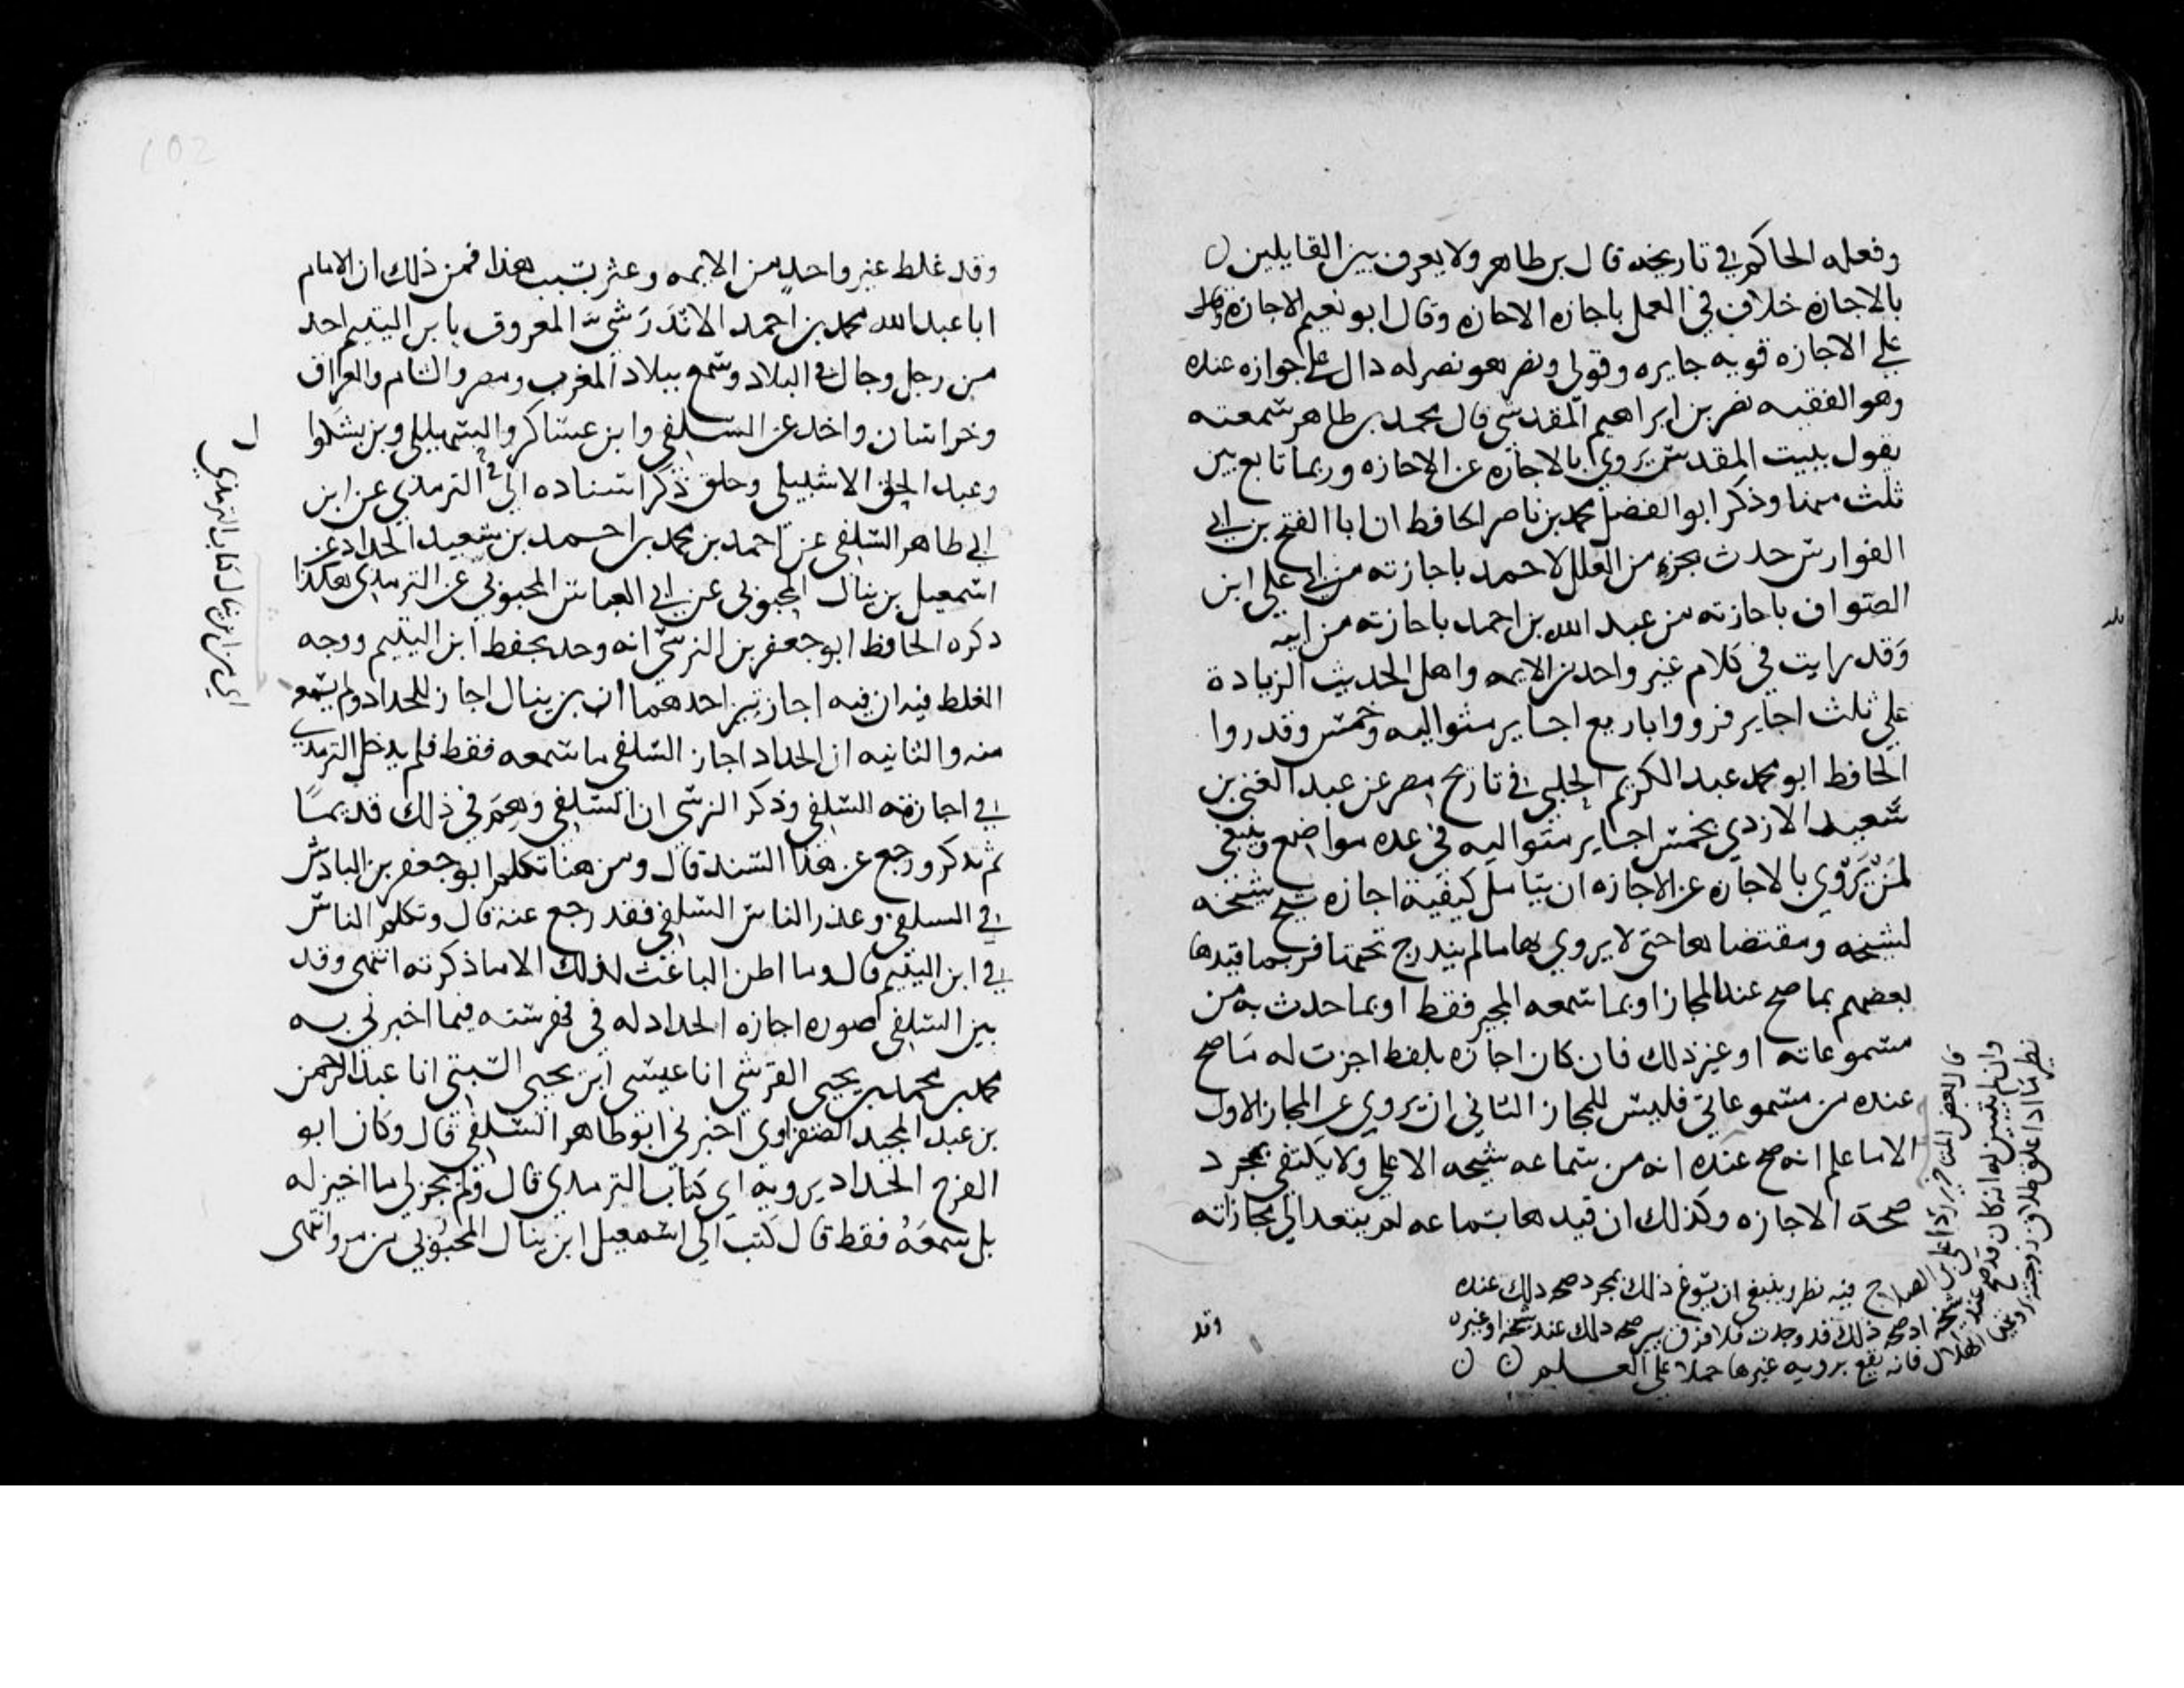 وفعله الحاكم في تاريخه قال بن طاهر ولا يعرف بين القايلين
بالاجازه خلاف في العمل باجازه الاجازه وقال ابو نعيم الاجازة
علي الاجازه قويه جايره وقولي ونصر هو نصر له دال علي جوازه عنده
وهو الفقيه نصر بن ابراهيم المقدسي قال محمد بن طاهر سمعته
يقول ببيت المقدس يروي بالاجازه عن الاجازه وربما تابع بين
ثلث منها وذكر ابو الفضل محمد بن ناصر الحافظ ان ابا الفتح بن ابي
الفوارس حدث بجزء من العلل لاحمد باجازته من ابي علي ابن
الصواف باجازته من عبد الله بن احمد باجازته من ابيه
وقد رايت في كلام غير واحد من الايمه واهل الحديث الزيادة
علي ثلث اجايز فرووا باربع اجايز متواليه وخمس وقد روا
الحافظ ابو محمد عبد الكريم الحلبي في تاريخ مصر عن عبد الغني بن
سعيد الازدي بخمس اجايز متواليه في عده مواضع وينبغي
لمن يروي بالاجازه عن الاجازه ان يتامل كيفية اجازه شيخ شيخه
لشيخه ومقتضاها حتي لا يروي بها ما لم يندرج تحتها فربما قيدها
بعضهم بما صح عند المجاز او بما سمعه المجيز فقط او بما حدث به من
مسموعاته او غير ذلك فان كان اجازه بلفظ اجزت له ما صح
عنده من مسموعاتي فليس للمجاز الثاني ان يروي عن المجاز الاول
الا ما علم انه صح عنده انه من سماعه شيخه الاعلي ولا يكتفي بمجرد
صحة الاجازه وكذلك ان قيدها بسماعه لم يتعد الي مجازاته
قال بعض المتاخرين رادا علي بن الصلاح فيه نظر وينبغي ان يسوغ ذلك بمجرد صحه ذلك عنده
وان لم يتبين له انه كان قد صح عند شيخه اذ صحه ذلك قد وجدت فلا فرق بين صحه ذلك عند شيخه او غيره
نظير ما اذا علق طلاق زوجته برويتها الهلال فانه يقع برويه غيرها حملا علي العلم
وقد
وقد غلط غير واحد من الايمه وعثر بسبب هذا فمن ذلك ان الامام
ابا عبد الله محمد بن احمد الاندرشي المعروف بابن اليتيم احد
من رجل وجال في البلاد وسمع ببلاد المغرب ومصر والشام والعراق
وخراسان واخذ عن السلفي وابن عساكر والسهيلي وبن بشكوا ل
وعبد الحق الاشبيلي وخلق ذكر اسناده الي الترمذي عن ابن
ابي طاهر السلفي عن احمد بن محمد بن احمد بن سعيد الحداد عن
اسمعيل بن ينال المحبوبي عن ابي العباس المحبوبي عن الترمذي هكذا
ذكره الحافظ ابو جعفر بن الزبير انه وجد بخط ابن اليتيم ووجه
الغلط فيه ان فيه اجازتين احدهما ان بن ينال اجاز للحداد ولم يسمعه
منه والثانيه ان الحداد اجاز السلفي ما سمعه فقط فلم يدخل الترمذي
في اجازته السلفي وذكر ان السلفي وهم في ذلك قديما
ثم تذكر ورجع عن هذا السند قال ومن هنا تكلم ابو جعفر بن الباذش
في السلفي وعذر الناس السلفي فقد رجع عنه قال وتكلم الناس
في ابن اليتيم قال وما اظن الباعث لذلك الا ما ذكرته انتهى وقد
بين السلفي صوره اجازه الحداد له في فهرسته فيما اخبرني به
محمد بن محمد بن يحيى القرشي انا عيسى ابن يحيى السبتي انا عبد الرحمن
بن عبد المجيد الصفراوي اخبرني ابو طاهر السلفي قال وكان ابو
الفرج الحداد يرويه اي كتاب الترمذي قال ولم يجز لي ما اجيز له
بل سمعه فقط قال كتب الي اسمعيل ابن ينال المحبوبي من مرو انتهى
اي من ابن ينال كتاب الترمذي